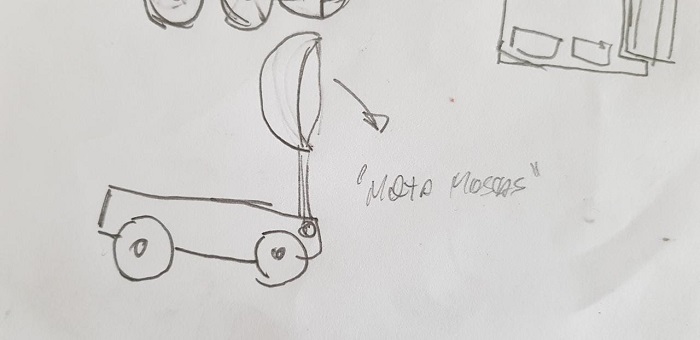 "Mata Moscas"